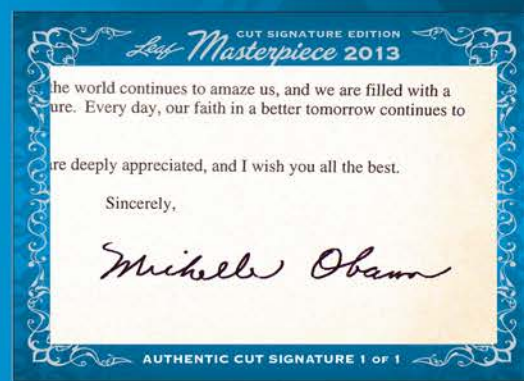 CUT SIGNATURE EDITION
Leaf Masterpiece 2013
the world continues to amaze us, and we are filled with a
ure. Every day, our faith in a better tomorrow continues to
re deeply appreciated, and I wish you all the best.
Sincerely,
Michelle Obama
AUTHENTIC CUT SIGNATURE 1 OF 1